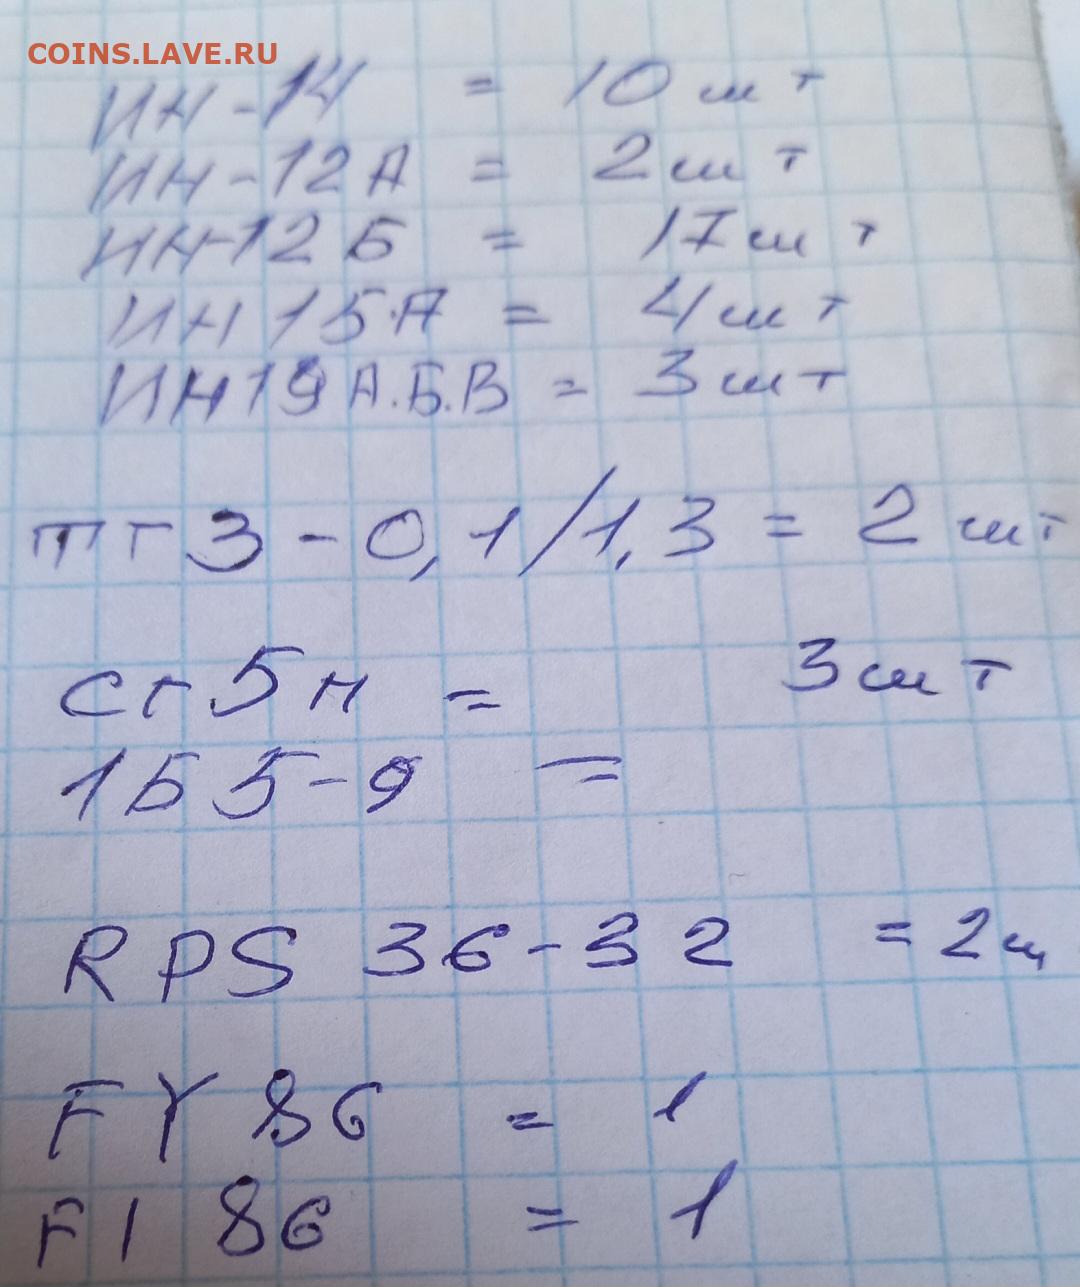 COINS.LAVE.RU
ИН-14 = 10 шт
ИН-12А = 2 шт
ИН-12Б = 17 шт
ИН 15.А = 4 шт
ИН 19 А.Б.В = 3 шт
ТГЗ - 0,1/1,3 = 2 шт
СГ5Н = 3 шт
1Б 5-9 =
RPS 36-32 = 2ш
FY 86 = 1
FI 86 = 1